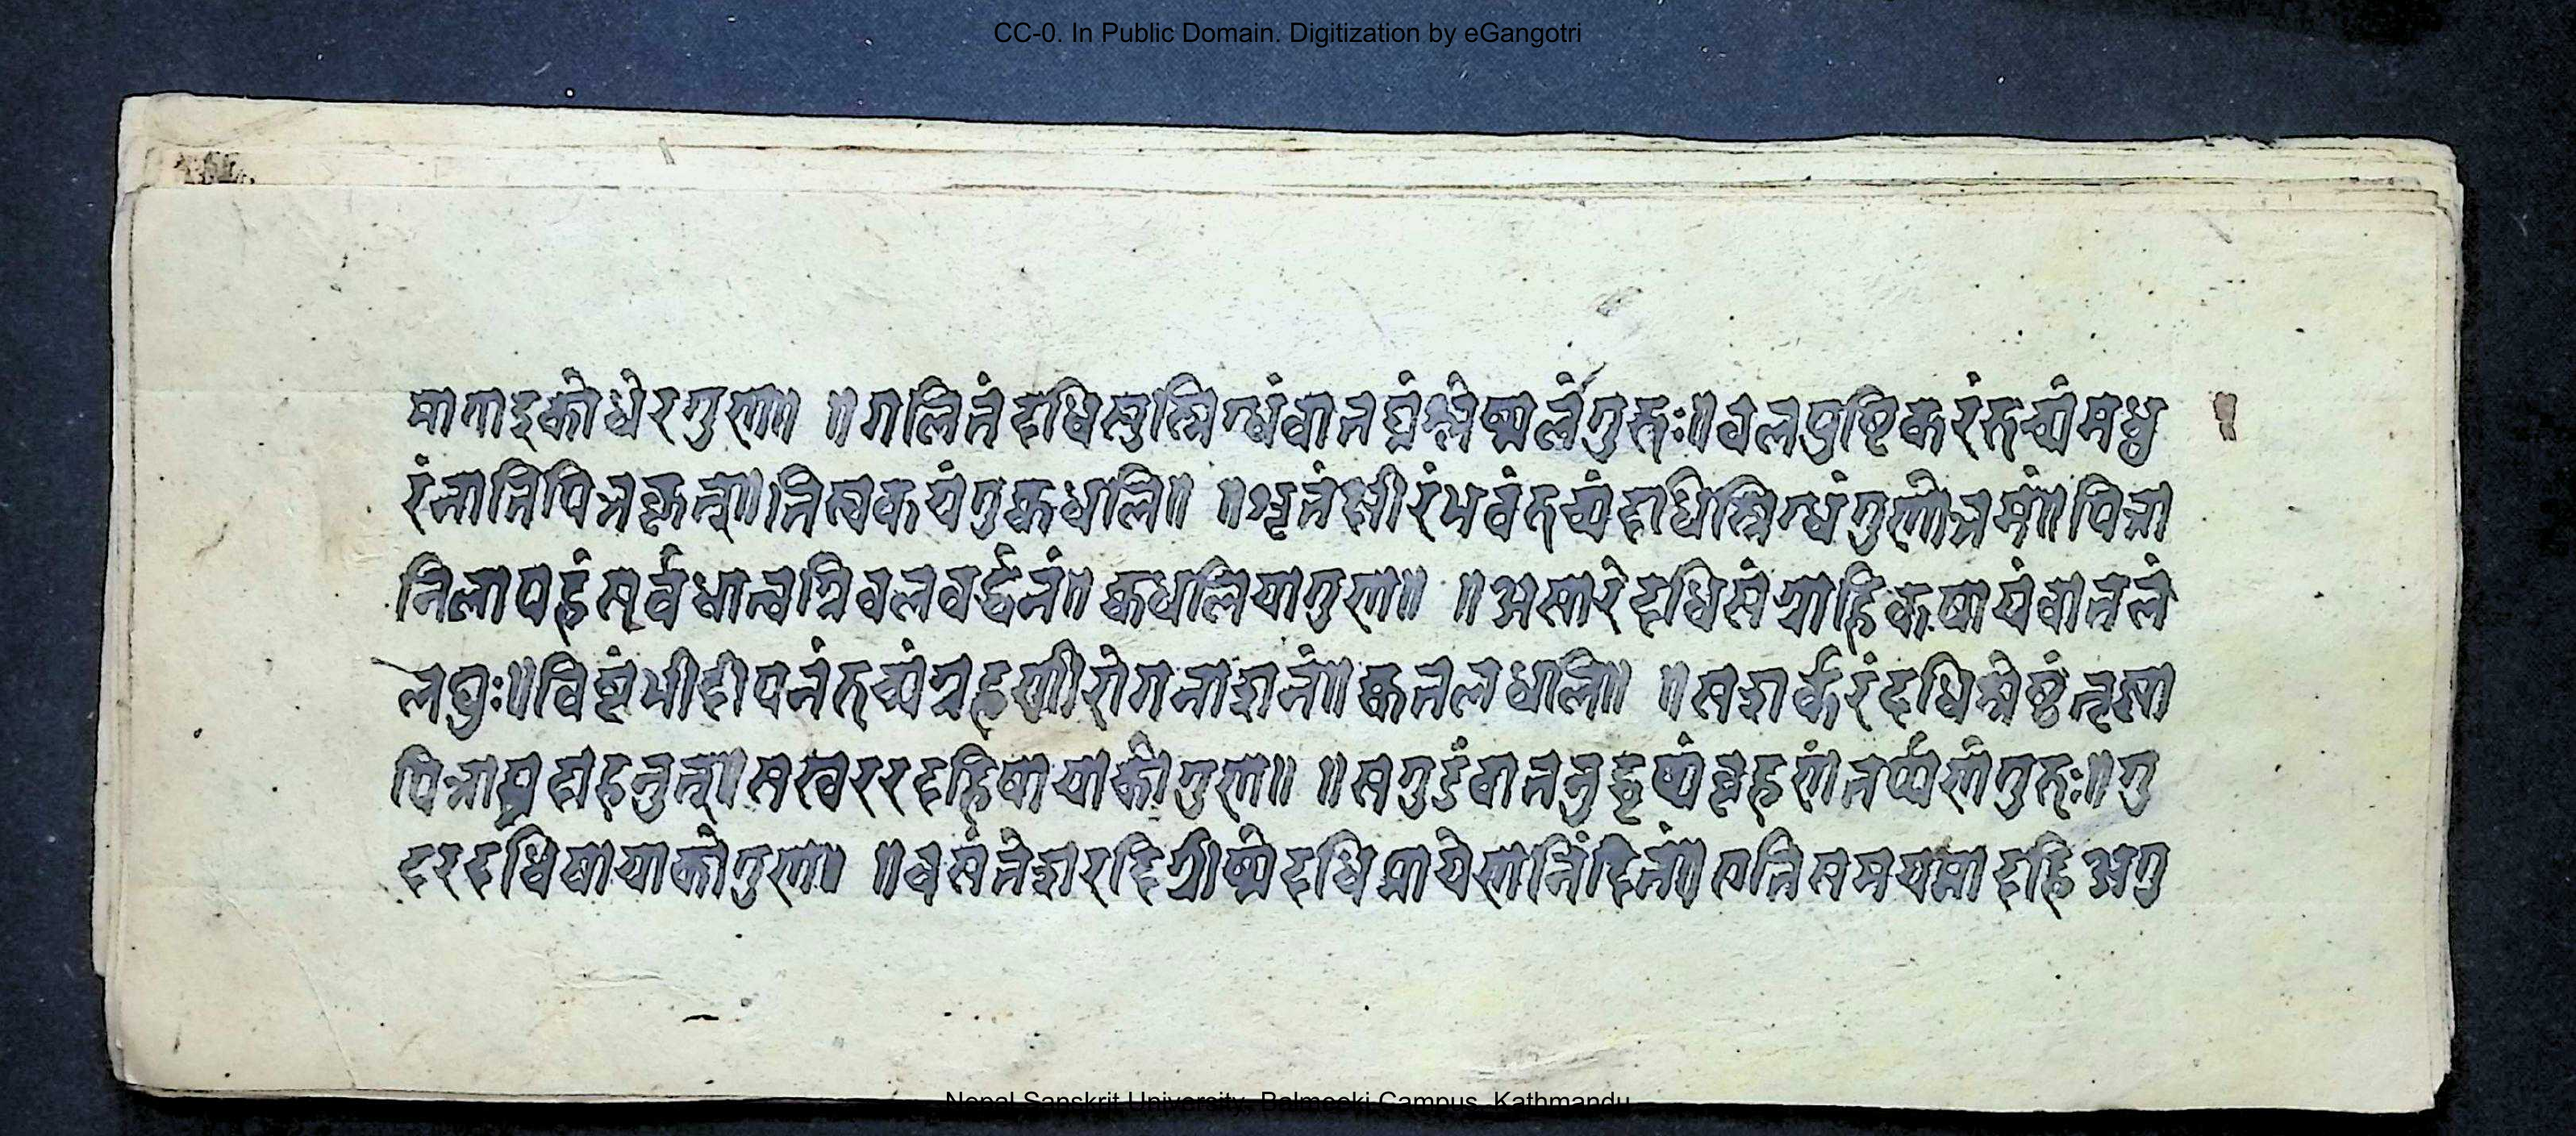 CC-0. In Public Domain. Digitization by eGangotri
गुण॥ ॥गलितं दधि सुस्निग्धं वातघ्नं श्लेष्मलं गुरुः॥ वलपुष्टिकरं रुच्यं मधु
रं नाति पित्तकृत्॥ ॥शृतं क्षीरं भवं रुच्यं दधि स्निग्धं गुणोत्तमं॥ पित्ता
निलापहं सर्वधात्वग्निवलवर्द्धनं॥ गुण॥ ॥असारं दधि संग्राहि कषायं वातलं
लघुः॥ विष्टंभी दीपनं रुच्यं ग्रहणीरोगनाशनं॥ ॥सशर्करं दधि श्रेष्ठं तृष्णा
पित्तास्रदाहनुत्॥ दहि षायाको गुण॥ ॥सगुडं वातनुद्वृष्यं वृहणं तर्प्पणं गुरुः॥ गु
दधि षायाको गुण॥ ॥वसंते शरदि ग्रीष्मे दधि प्रायेण निंदितं॥ दहि
Nepal Sanskrit University, Balmeeki Campus, Kathmandu